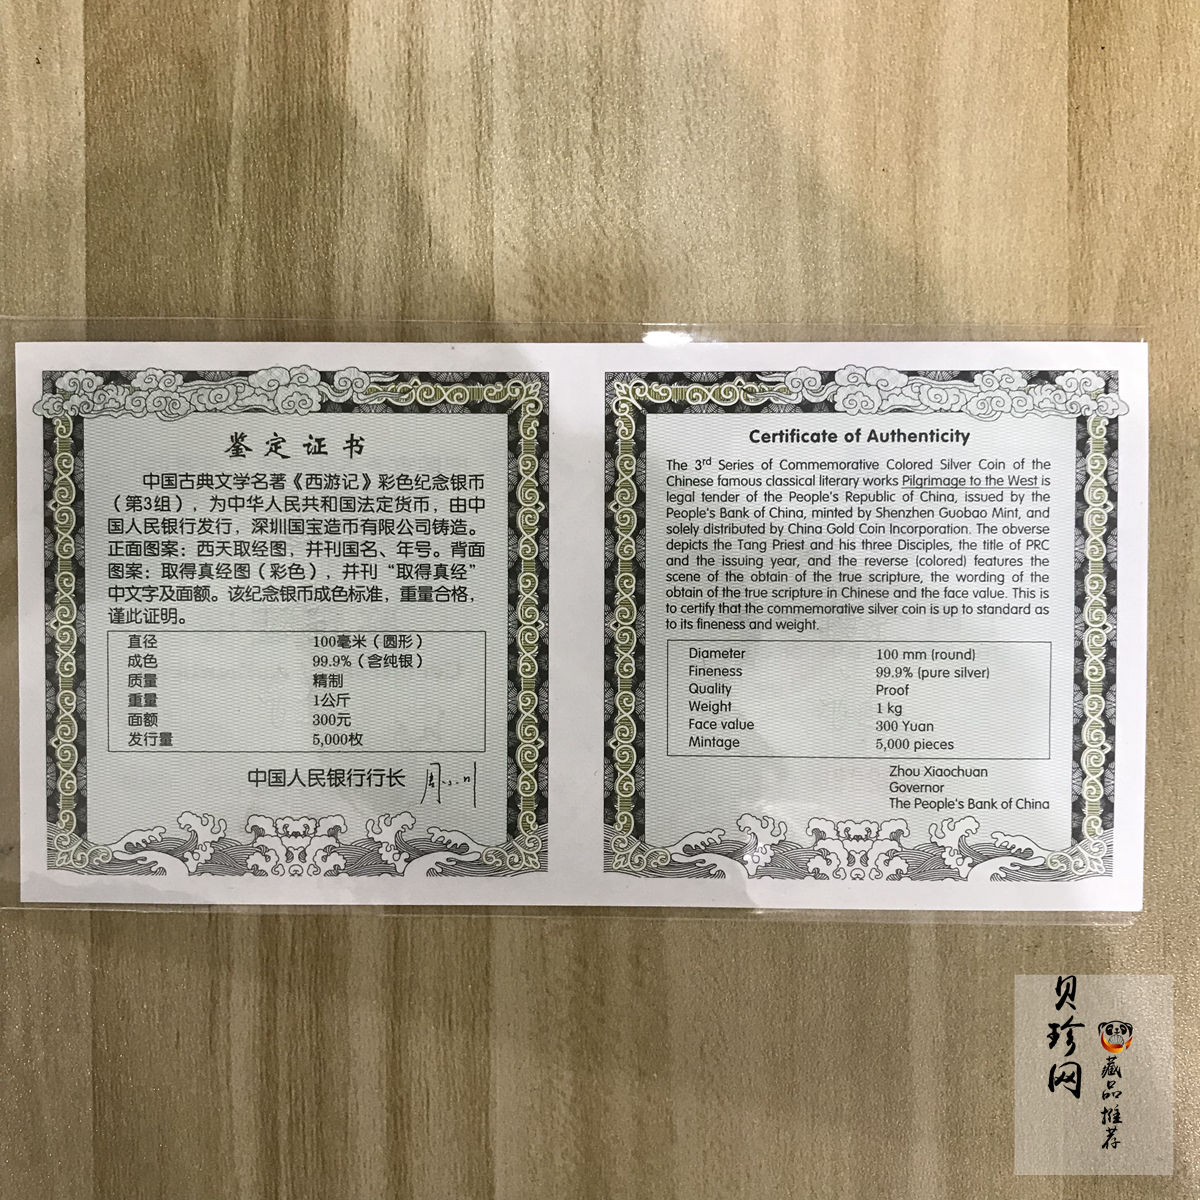 鉴定证书
中国古典文学名著《西游记》彩色纪念银币
（第3组），为中华人民共和国法定货币，由中
国人民银行发行，深圳国宝造币有限公司铸造。
正面图案：西天取经图，并刊国名、年号。背面
图案：取得真经图（彩色），并刊“取得真经”
中文字及面额。该纪念银币成色标准，重量合格，
谨此证明。
直径 100毫米（圆形）
成色 99.9%（含纯银）
质量 精制
重量 1公斤
面额 300元
发行量 5,000枚
中国人民银行行长 周小川
Certificate of Authenticity
The 3rd Series of Commemorative Colored Silver Coin of the
Chinese famous classical literary works Pilgrimage to the West is
legal tender of the People's Republic of China, issued by the
People's Bank of China, minted by Shenzhen Guobao Mint, and
solely distributed by China Gold Coin Incorporation. The obverse
depicts the Tang Priest and his three Disciples, the title of PRC
and the issuing year, and the reverse (colored) features the
scene of the obtain of the true scripture, the wording of the
obtain of the true scripture in Chinese and the face value. This is
to certify that the commemorative silver coin is up to standard as
to its fineness and weight.
Diameter 100 mm (round)
Fineness 99.9% (pure silver)
Quality Proof
Weight 1 kg
Face value 300 Yuan
Mintage 5,000 pieces
Zhou Xiaochuan
Governor
The People's Bank of China
贝珍网
藏品推荐